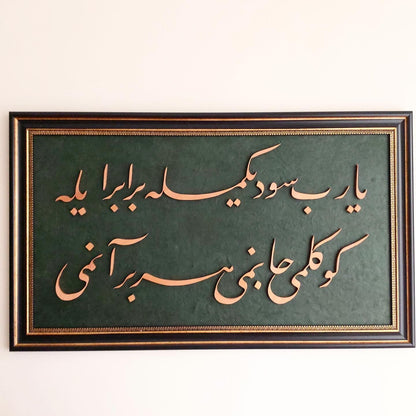 یا رب سودیکمله برابر ایله
کوکلمی جانمی هر بر آنمی